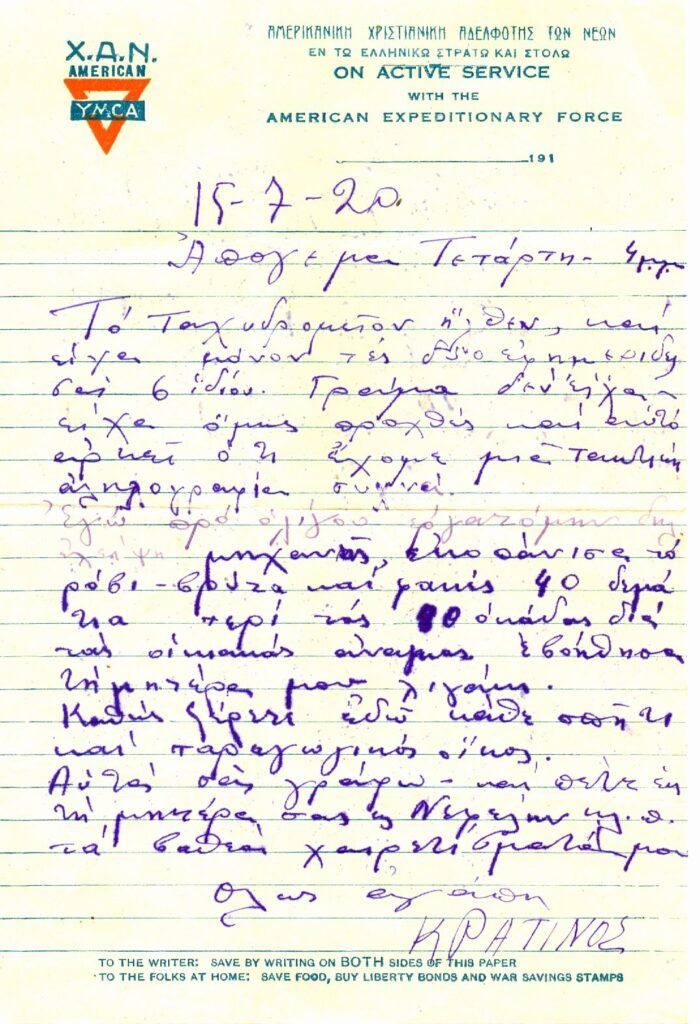 Χ.Α.Ν.
AMERICAN
YMCA
ΑΜΕΡΙΚΑΝΙΚΗ ΧΡΙΣΤΙΑΝΙΚΗ ΑΔΕΛΦΟΤΗΣ ΤΩΝ ΝΕΩΝ
ΕΝ ΤΩ ΕΛΛΗΝΙΚΩ ΣΤΡΑΤΩ ΚΑΙ ΣΤΟΛΩ
ON ACTIVE SERVICE
WITH THE
AMERICAN EXPEDITIONARY FORCE
191
15-7-20.
Ἀπόγεμα Τετάρτη - 4 μ.μ.
Τό Ταχυδρομεῖον ἦλθεν, καί
εἶχα μόνον τές δύο ἐφημερίδες
σας 6 ἰδίου. Γράμμα δέν εἶχα
εἶχα ὅμως προχθές καί αὐτό
ἀρκεῖ ὅτι ἔχομε μιά τακτική
ἀλληλογραφία συχνά.
Ἐγώ πρό ὀλίγου ἐργαζόμην
μηχανῆς, ἐκοπάνισα τό
ρόβι - καί φακές 40 δεμά
τια περί τάς 80 ὀκάδας διά
τάς οἰκιακάς ἀνάγκας ἐβοήθησα
τή μητέρα μου λιγάκι.
Καθώς ξέρετε ἐδῶ κάθε σπῆτι
καί παραγωγικός οἶκος.
Αὐτά σᾶς γράφω - καί πέτε εἰς
τή μητέρα σας εἰς Νεφέλην κλ.π.
τά βαθειά χαιρετίσματά μου
Ὅλως ἀγάπη
ΚΡΑΤΙΝΟΣ
TO THE WRITER: SAVE BY WRITING ON BOTH SIDES OF THIS PAPER
TO THE FOLKS AT HOME: SAVE FOOD, BUY LIBERTY BONDS AND WAR SAVINGS STAMPS